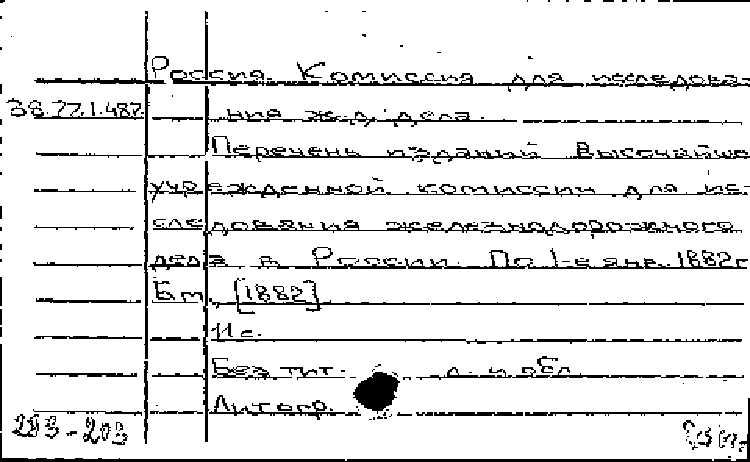 Россия. Комиссия для исследова-
38.77.1.487. ния ж.д. дела.
Перечень изданий Высочайше
учрежденной комиссии для ис-
следования железнодорожного
дела в России. По 1-е янв. 1882г
Б.м., [1882]
11 с.
Без тит. л. и обл.
Литогр.
203